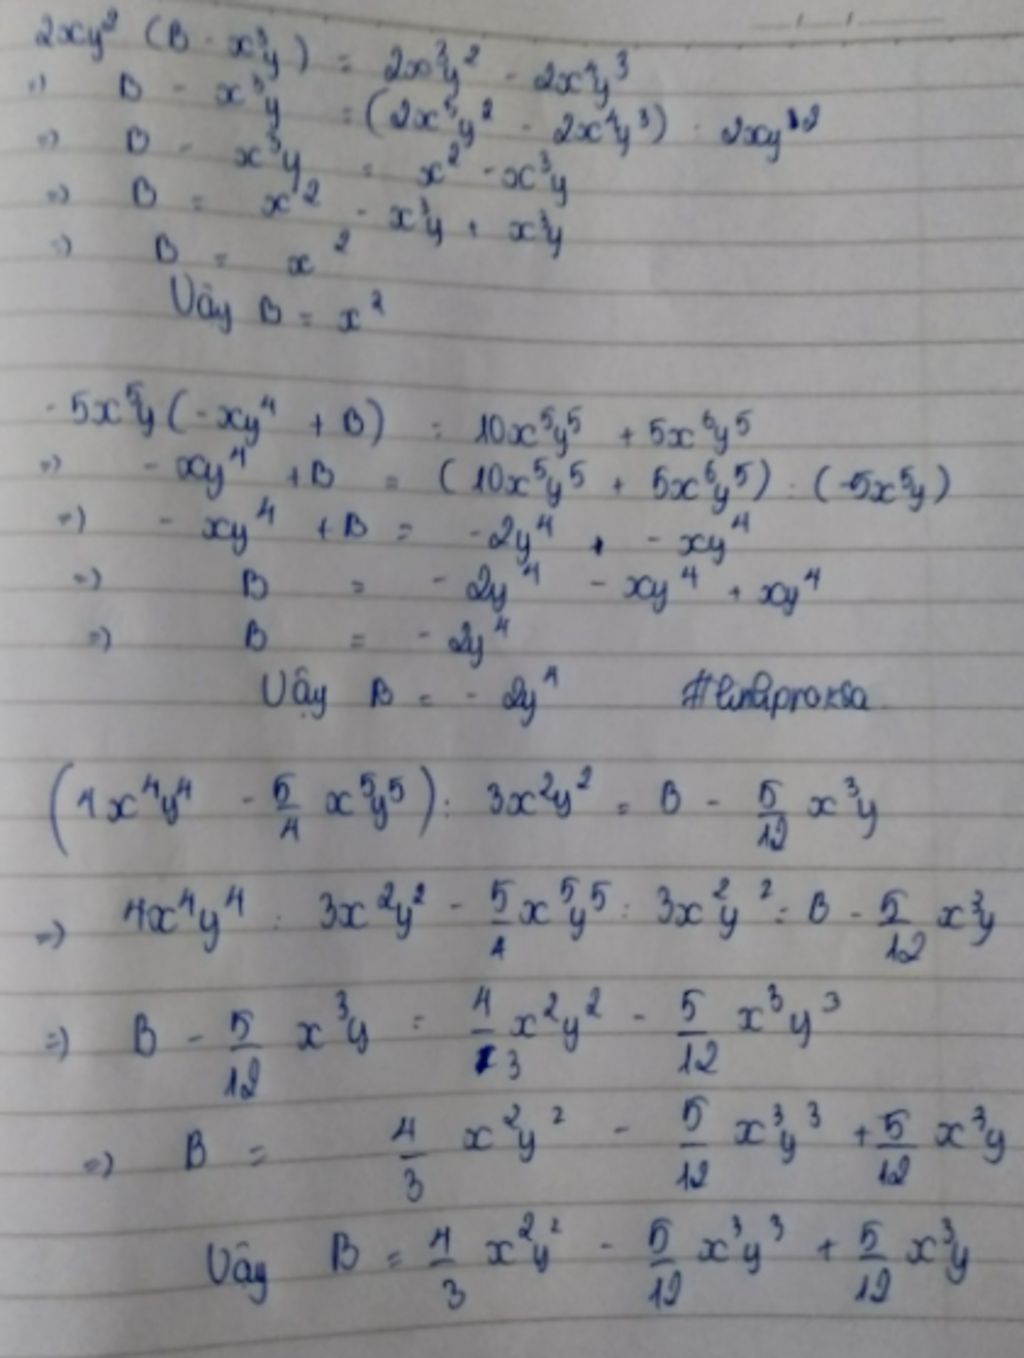 2xy² (B - x³y) = 2x³y² - 2x⁴y³
=) B - x³y = (2x⁵y² - 2x⁴y³) : 2xy²
=) B - x³y = x² - x³y
=) B = x² - x³y + x³y
=) B = x²
Vậy B = x²
- 5x⁵y (-xy⁴ + B) = 10x⁵y⁵ + 5x⁶y⁵
=) - xy⁴ + B = (10x⁵y⁵ + 5x⁶y⁵) : (-5x⁵y)
=) - xy⁴ + B = -2y⁴ - xy⁴
=) B = - 2y⁴ - xy⁴ + xy⁴
=) B = - 2y⁴
Vậy B = - 2y⁴
(4x⁴y⁴ - 5/4 x⁵y⁵) : 3x²y² = B - 5/12 x³y
=) 4x⁴y⁴ : 3x²y² - 5/4 x⁵y⁵ : 3x²y² = B - 5/12 x³y
=) B - 5/12 x³y = 4/3 x²y² - 5/12 x³y³
=) B = 4/3 x²y² - 5/12 x³y³ + 5/12 x³y
Vậy B = 4/3 x²y² - 5/12 x³y³ + 5/12 x³y